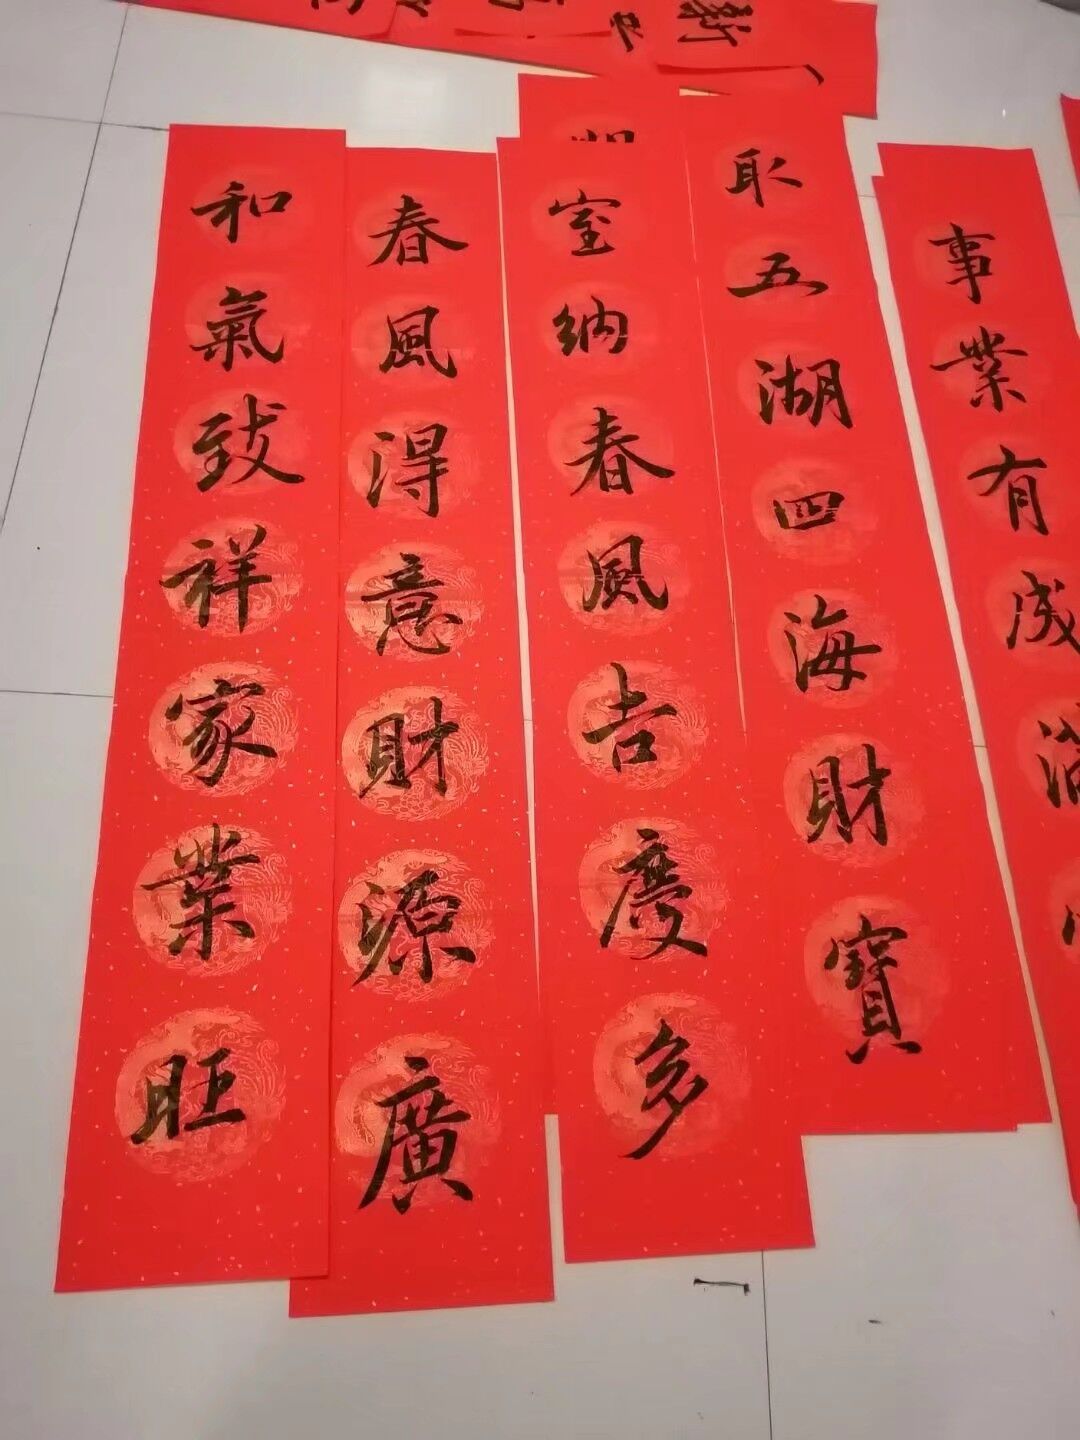 和氣致祥家業旺
春風得意財源廣
室納春風吉慶多
取五湖四海財寶
事業有成滿
新